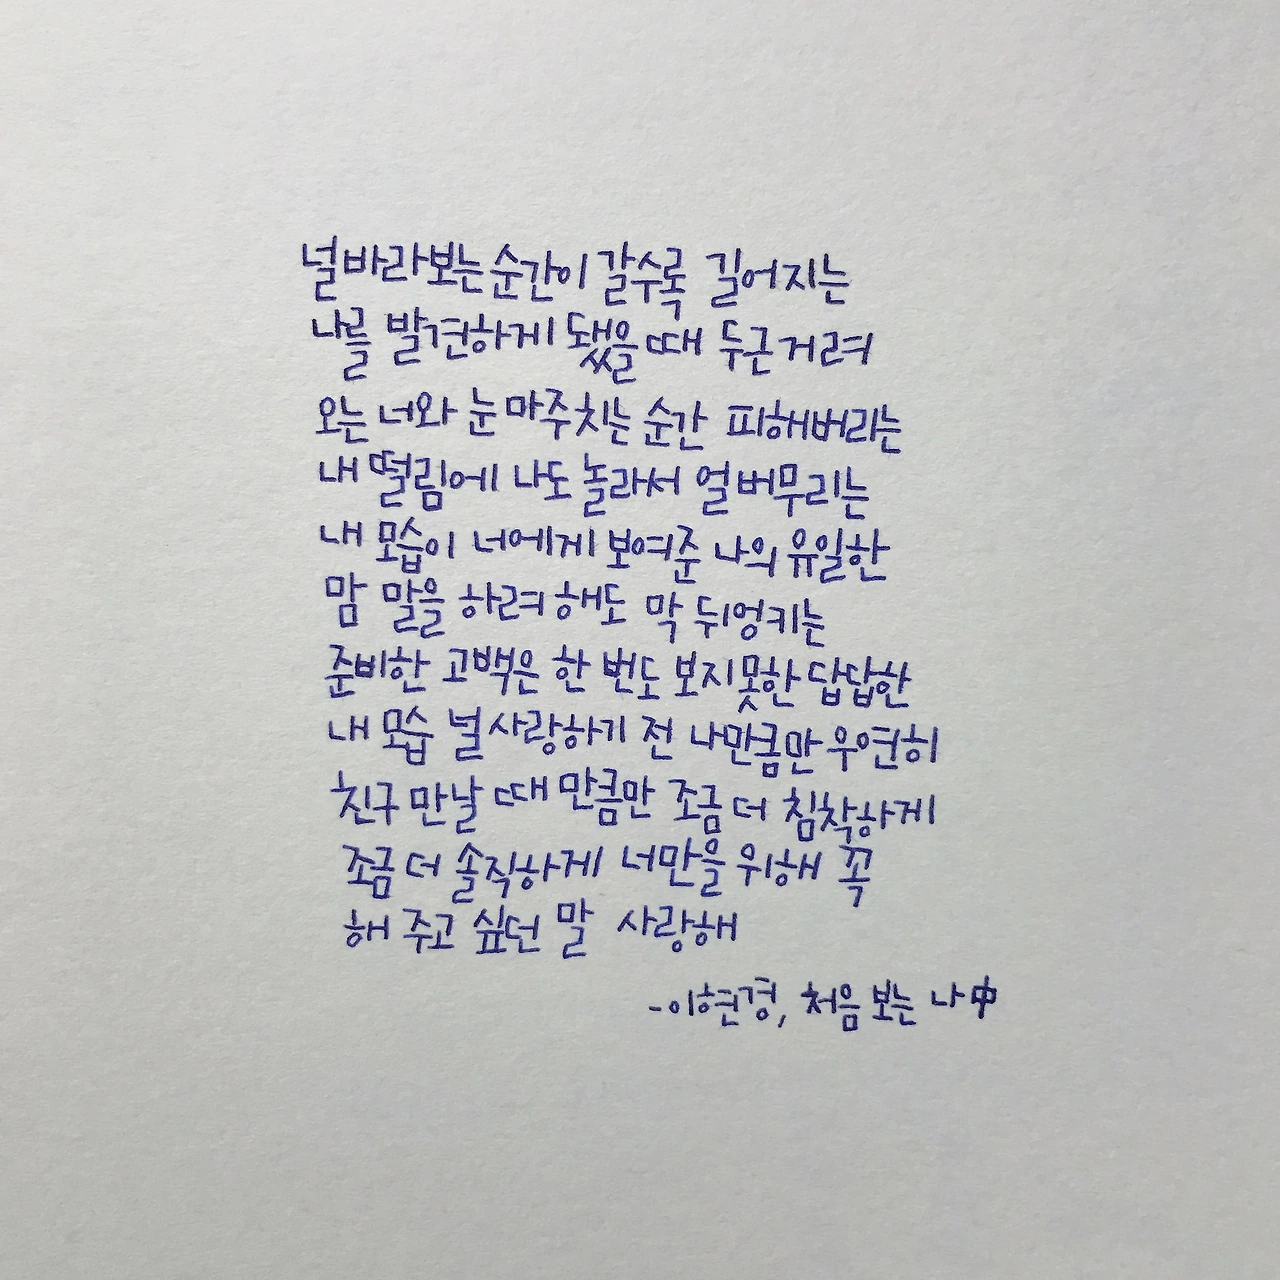 널 바라보는 순간이 갈수록 길어지는
나를 발견하게 됐을 때 두근거려
오는 너와 눈 마주치는 순간 피해버리는
내 떨림에 나도 놀라서 얼버무리는
내 모습이 너에게 보여준 나의 유일한
맘 말을 하려 해도 막 뒤엉키는
준비한 고백은 한 번도 보지 못한 답답한
내 모습 널 사랑하기 전 나만큼만 우연히
친구 만날 때 만큼만 조금 더 침착하게
조금 더 솔직하게 너만을 위해 꼭
해 주고 싶던 말 사랑해
-이현경, 처음 보는 나 中